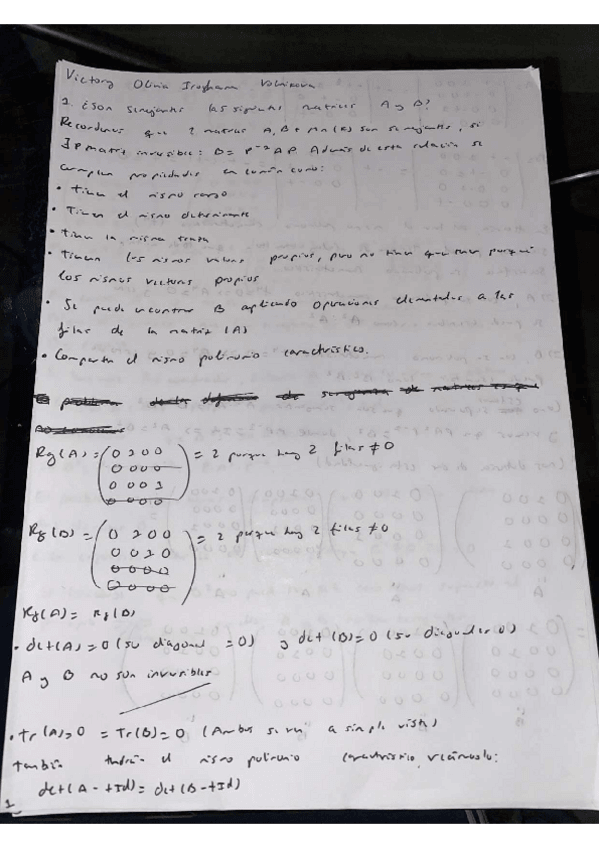 Victory Olivia
1. ¿Son semejantes las siguientes matrices A y B?
Recordemos que 2 matrices A, B ∈ Mn(K) son semejantes, si
∃ P matriz invertible: B = P⁻¹ A P. Además de esta relación se
cumplen propiedades en común como:
• Tienen el mismo rango
• Tienen el mismo determinante
• Tienen la misma traza
• Tienen los mismos valores propios, pero no tienen que tener porqué
los mismos vectores propios
• Se puede encontrar B aplicando operaciones elementales a las
filas de la matriz (A)
• Comparten el mismo polinomio característico.
Rg(A) = (0 1 0 0
0 0 0 0
0 0 0 1
0 0 0 0) = 2 porque hay 2 filas ≠ 0
Rg(B) = (0 1 0 0
0 0 1 0
0 0 0 0
0 0 0 0) = 2 porque hay 2 filas ≠ 0
Rg(A) = Rg(B)
• det(A) = 0 (su diagonal = 0) y det(B) = 0 (su diagonal es 0)
A y B no son invertibles
• Tr(A) = 0 = Tr(B) = 0 (Ambas se ven a simple vista)
También tendrán el mismo polinomio característico, veámoslo:
det(A - tId) = det(B - tId)
1